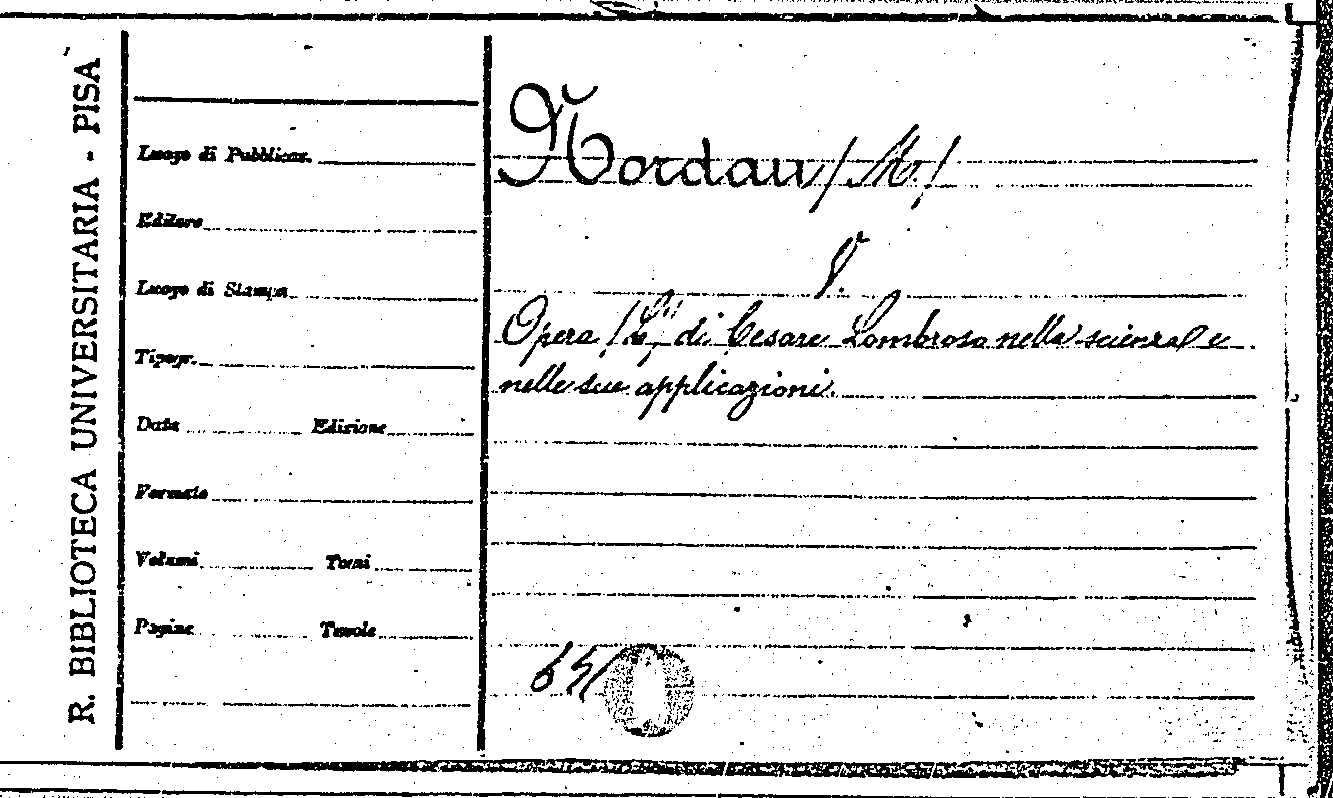 R. BIBLIOTECA UNIVERSITARIA - PISA
Luogo di Pubblicaz.
Editore
Luogo di Stampa
Tipogr.
Data Edizione
Formato
Volumi Tomi
Pagine Tavole
Nordau (M.)
V.
Opera (L') di Cesare Lombroso nella scienza e
nelle sue applicazioni.